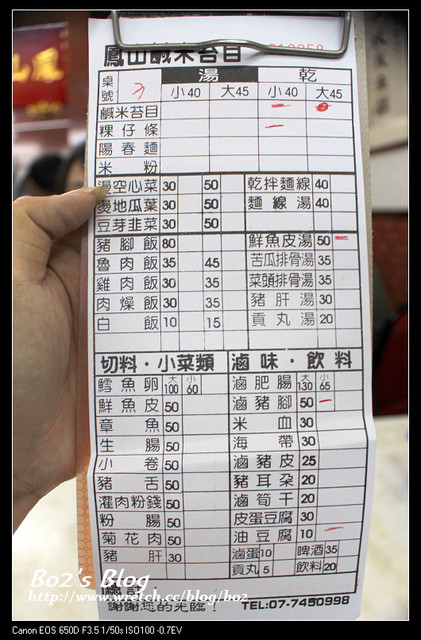 鳳山鹹米苔目
桌號 湯 乾
小40 大45 小40 大45
鹹米苔目
粿仔條
陽春麵
米粉
燙空心菜 30 50 乾拌麵線 40
燙地瓜葉 30 50 麵線湯 40
豆芽韭菜 30 50
豬腳飯 80 鮮魚皮湯 50
魯肉飯 35 45 苦瓜排骨湯 35
雞肉飯 30 35 菜頭排骨湯 35
肉燥飯 30 35 豬肝湯 30
白飯 10 15 貢丸湯 20
切料·小菜類 滷味·飲料
鱈魚卵 大100 小60 滷肥腸 大130 小65
鮮魚皮 50 滷豬腳 50
章魚 50 米血 30
生腸 50 海帶 30
小卷 50 滷豬皮 25
豬舌 50 豬耳朶 20
灌肉粉錢 50 滷筍干 20
粉腸 50 皮蛋豆腐 30
菊花肉 50 油豆腐 10
豬肝 30 滷蛋 10 啤酒 35
貢丸 5 飲料 20
謝謝您的光臨！ TEL:07-7450998
Bo2's Blog
http://www.wretch.cc/blog/bo2
Canon EOS 650D F3.5 1/50s ISO100 -0.7EV